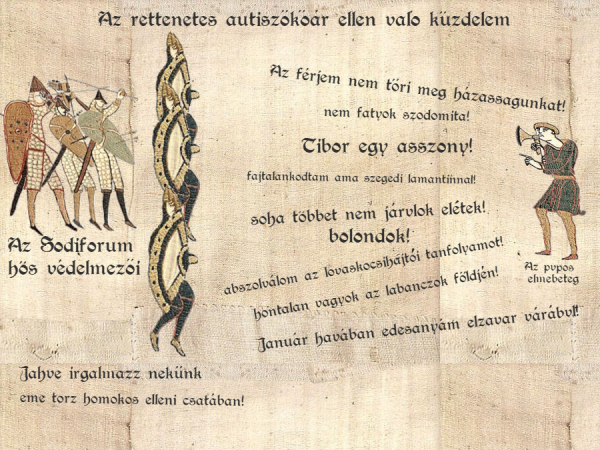 Az rettenetes autiszökőár ellen valo küzdelem
Az férjem nem töri meg házassagunkat!
nem fatyok szodomita!
Tibor egy asszony!
fajtalankodtam ama szegedi lamantíinnal!
soha többet nem járvlok elétek!
bolondok!
abszolválom az lovaskocsihájtói tanfolyamot!
hontalan vagyok az labanczok földjén!
Január havában edesanyám elzavar várábvl!
Az Sodiforum
hös védelmezöi
Az pvpos
elmebeteg
Jahve irgalmazz nekünk
eme torz homokos elleni csatában!